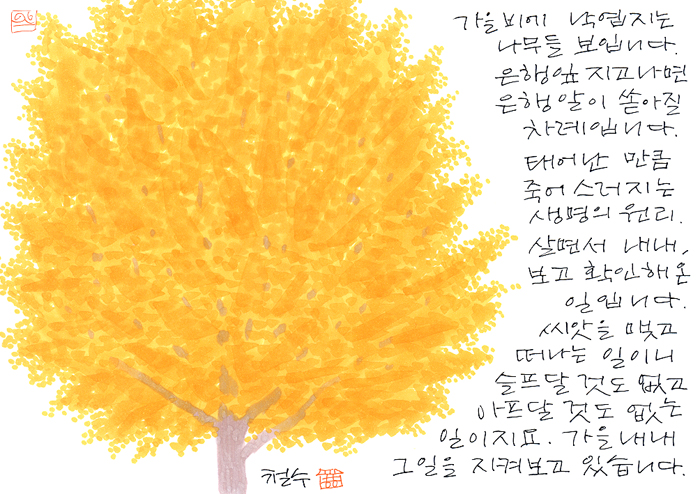 가을비에 낙엽지는
나무들 보입니다.
은행잎 지고나면
은행알이 쏟아질
차례입니다.
태어난 만큼
죽어 스러지는
생명의 원리.
살면서 내내,
보고 확인해온
일입니다.
씨앗을 맺고
떠나는 일이니
슬프달 것도 없고
아프달 것도 없는
일이지요. 가을내내
그일을 지켜보고 있습니다.
철수